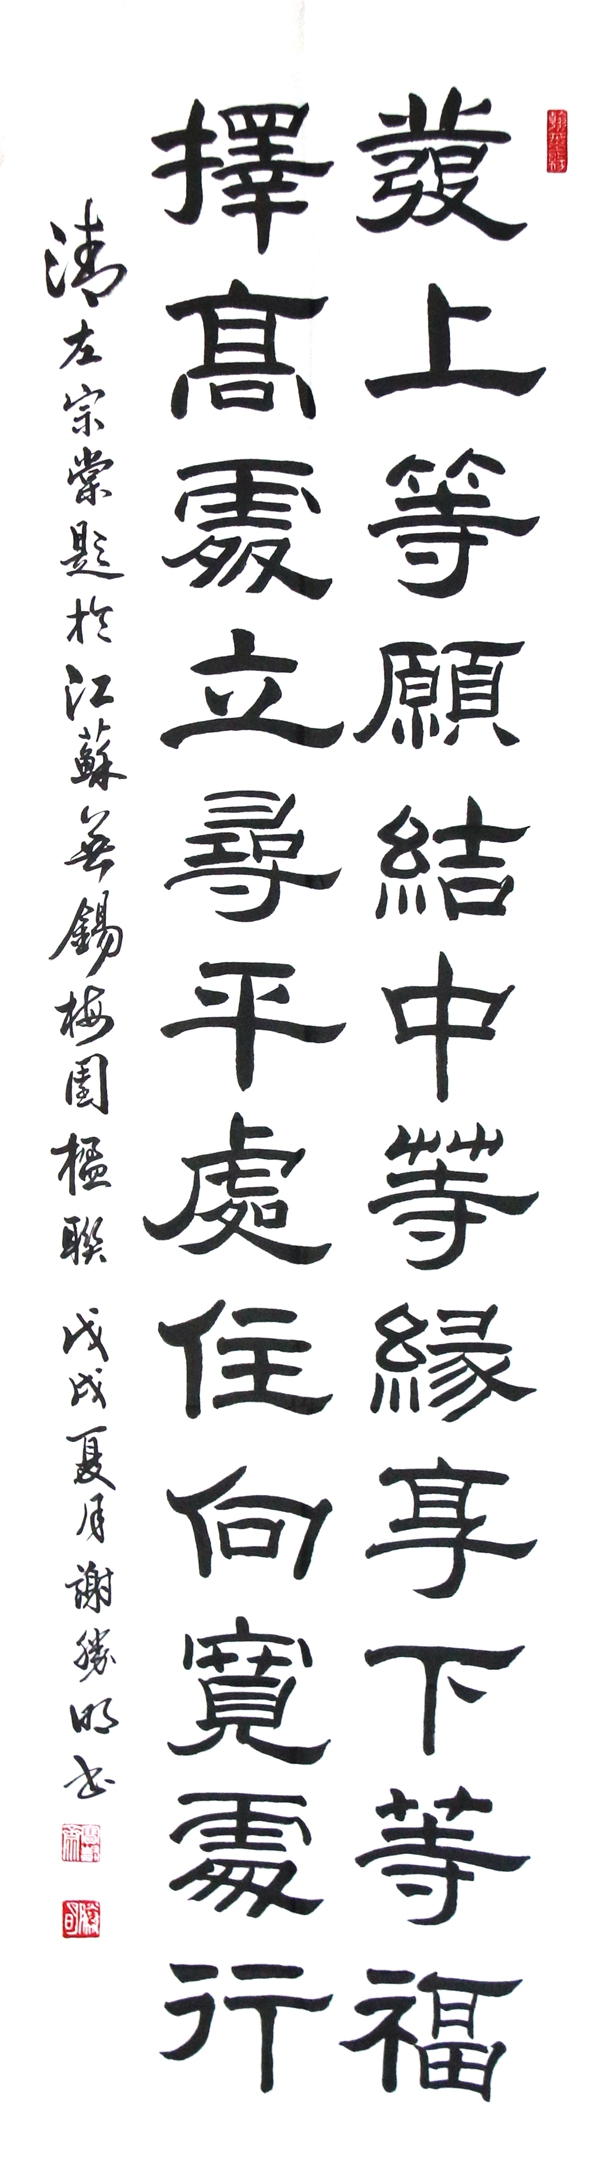 發上等願結中等緣享下等福
擇高處立尋平處住向寬處行
清左宗棠題於江蘇無錫梅園楹聯 戊戌夏月謝勝明書